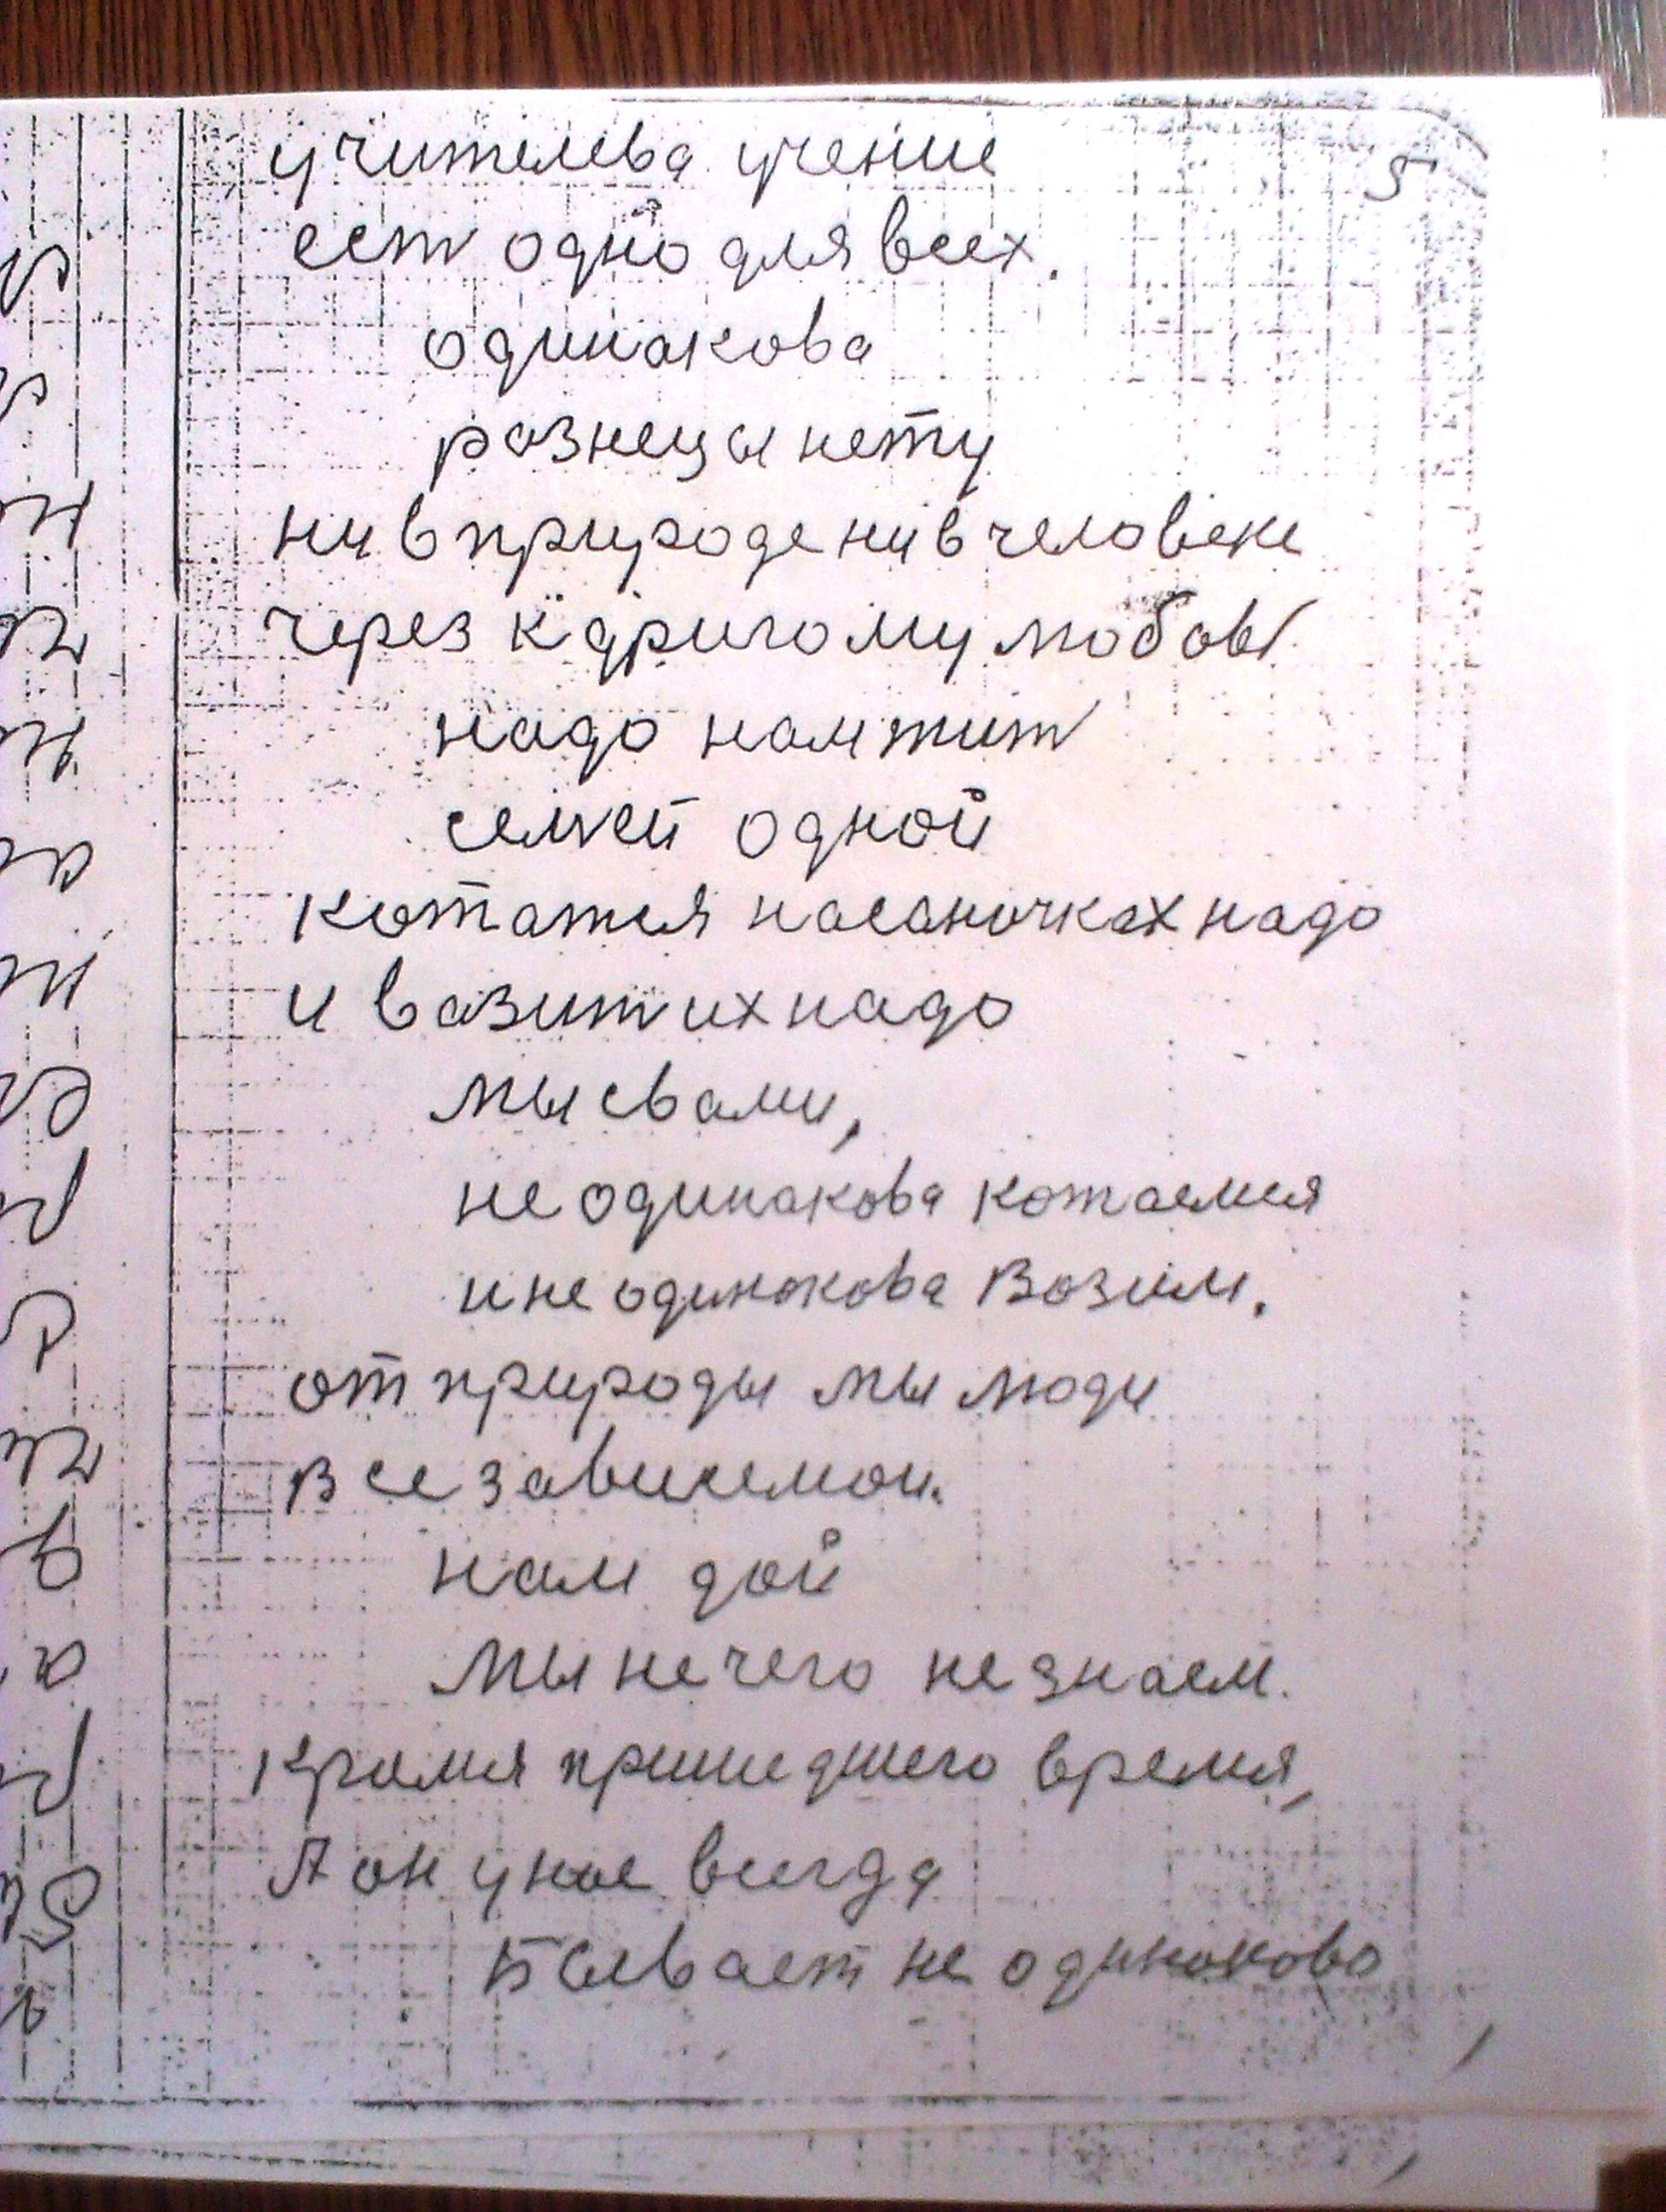 5
учителева учение
ест одно для всех.
одинакова
рознецы нету
ни в природе ни в человеке
через к дригому любовь
надо нам жит
семьей одной
кататся на саночках надо
и вазит их надо
мы с вами,
не одинакова катаемся
и не одинакова возим.
от природы мы люди
все зависемои.
нам дай
мы нечего не знаем.
кромя пришедшего время,
А он у нас всегда
бывает не одинаково